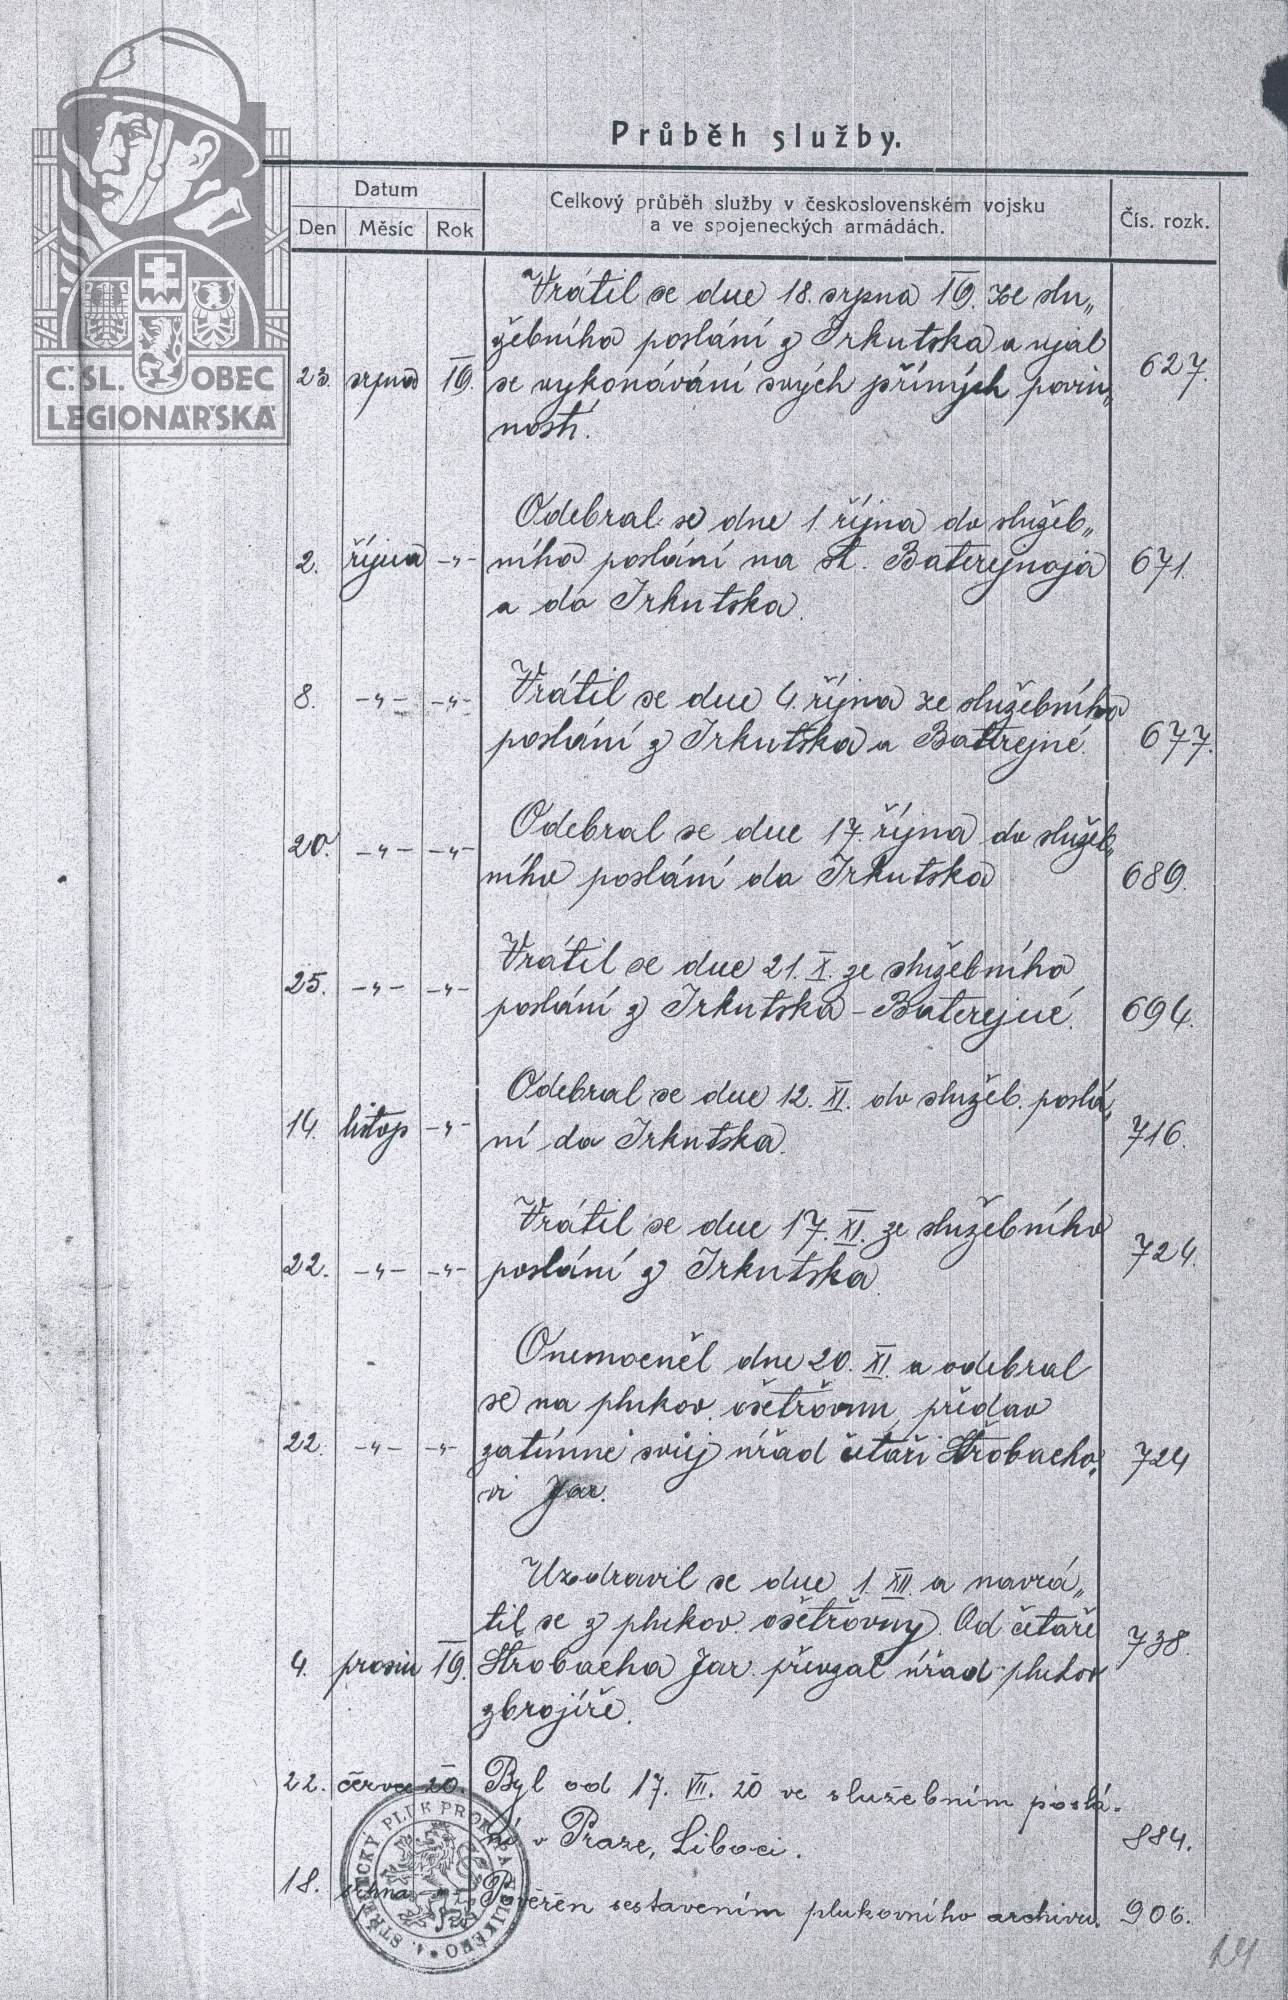 Č.SL. OBEC
LEGIONÁŘSKÁ
Průběh služby.
Datum
Den Měsíc Rok
Celkový průběh služby v československém vojsku
a ve spojeneckých armádách.
Čís. rozk.
Vrátil se dne 18. srpna 19. ze slu„
žebního poslání z Irkutska a ujal
23. srpna 19. se vykonávání svých přímých povin„ 627.
ností.
Odebral se dne 1 října do služeb„
2. října -„- ního poslání na st. Baterejnaja 671.
a do Irkutska.
8. -„- -„- Vrátil se dne 4. října ze služebního
poslání z Irkutska a Baterejné. 677.
Odebral se dne 17. října do služeb„
20. -„- -„- ního poslání do Irkutska 689.
Vrátil se dne 21. X. ze služebního
25. -„- -„- poslání z Irkutska - Baterejné. 694.
Odebral se dne 12. XI. do služeb. poslá„
14. listop -„- ní do Irkutska. 716.
Vrátil se dne 17. XI. ze služebního
22. -„- -„- poslání z Irkutska. 724.
Onemocněl dne 20. XI. a odebral
se na plukov. ošetřovnu, předav
22. -„- -„- zatímně svůj úřad četaři Strobacho„ 724
vi Jar.
Uzdravil se dne 1. XII. a navrá„
til se z plukov. ošetřovny. Od četaře
4. prosin 19. Strobacha Jar. převzal úřad plukov 738.
zbrojíře.
22. červce 20. Byl od 17. VII. 20 ve služebním poslá-
ní v Praze, Liboci. 884.
18. srpna -„- Pověřén sestavením plukovního archivu. 906.
4. STŘELECKÝ PLUK PROKOPA VELIKÉHO
14